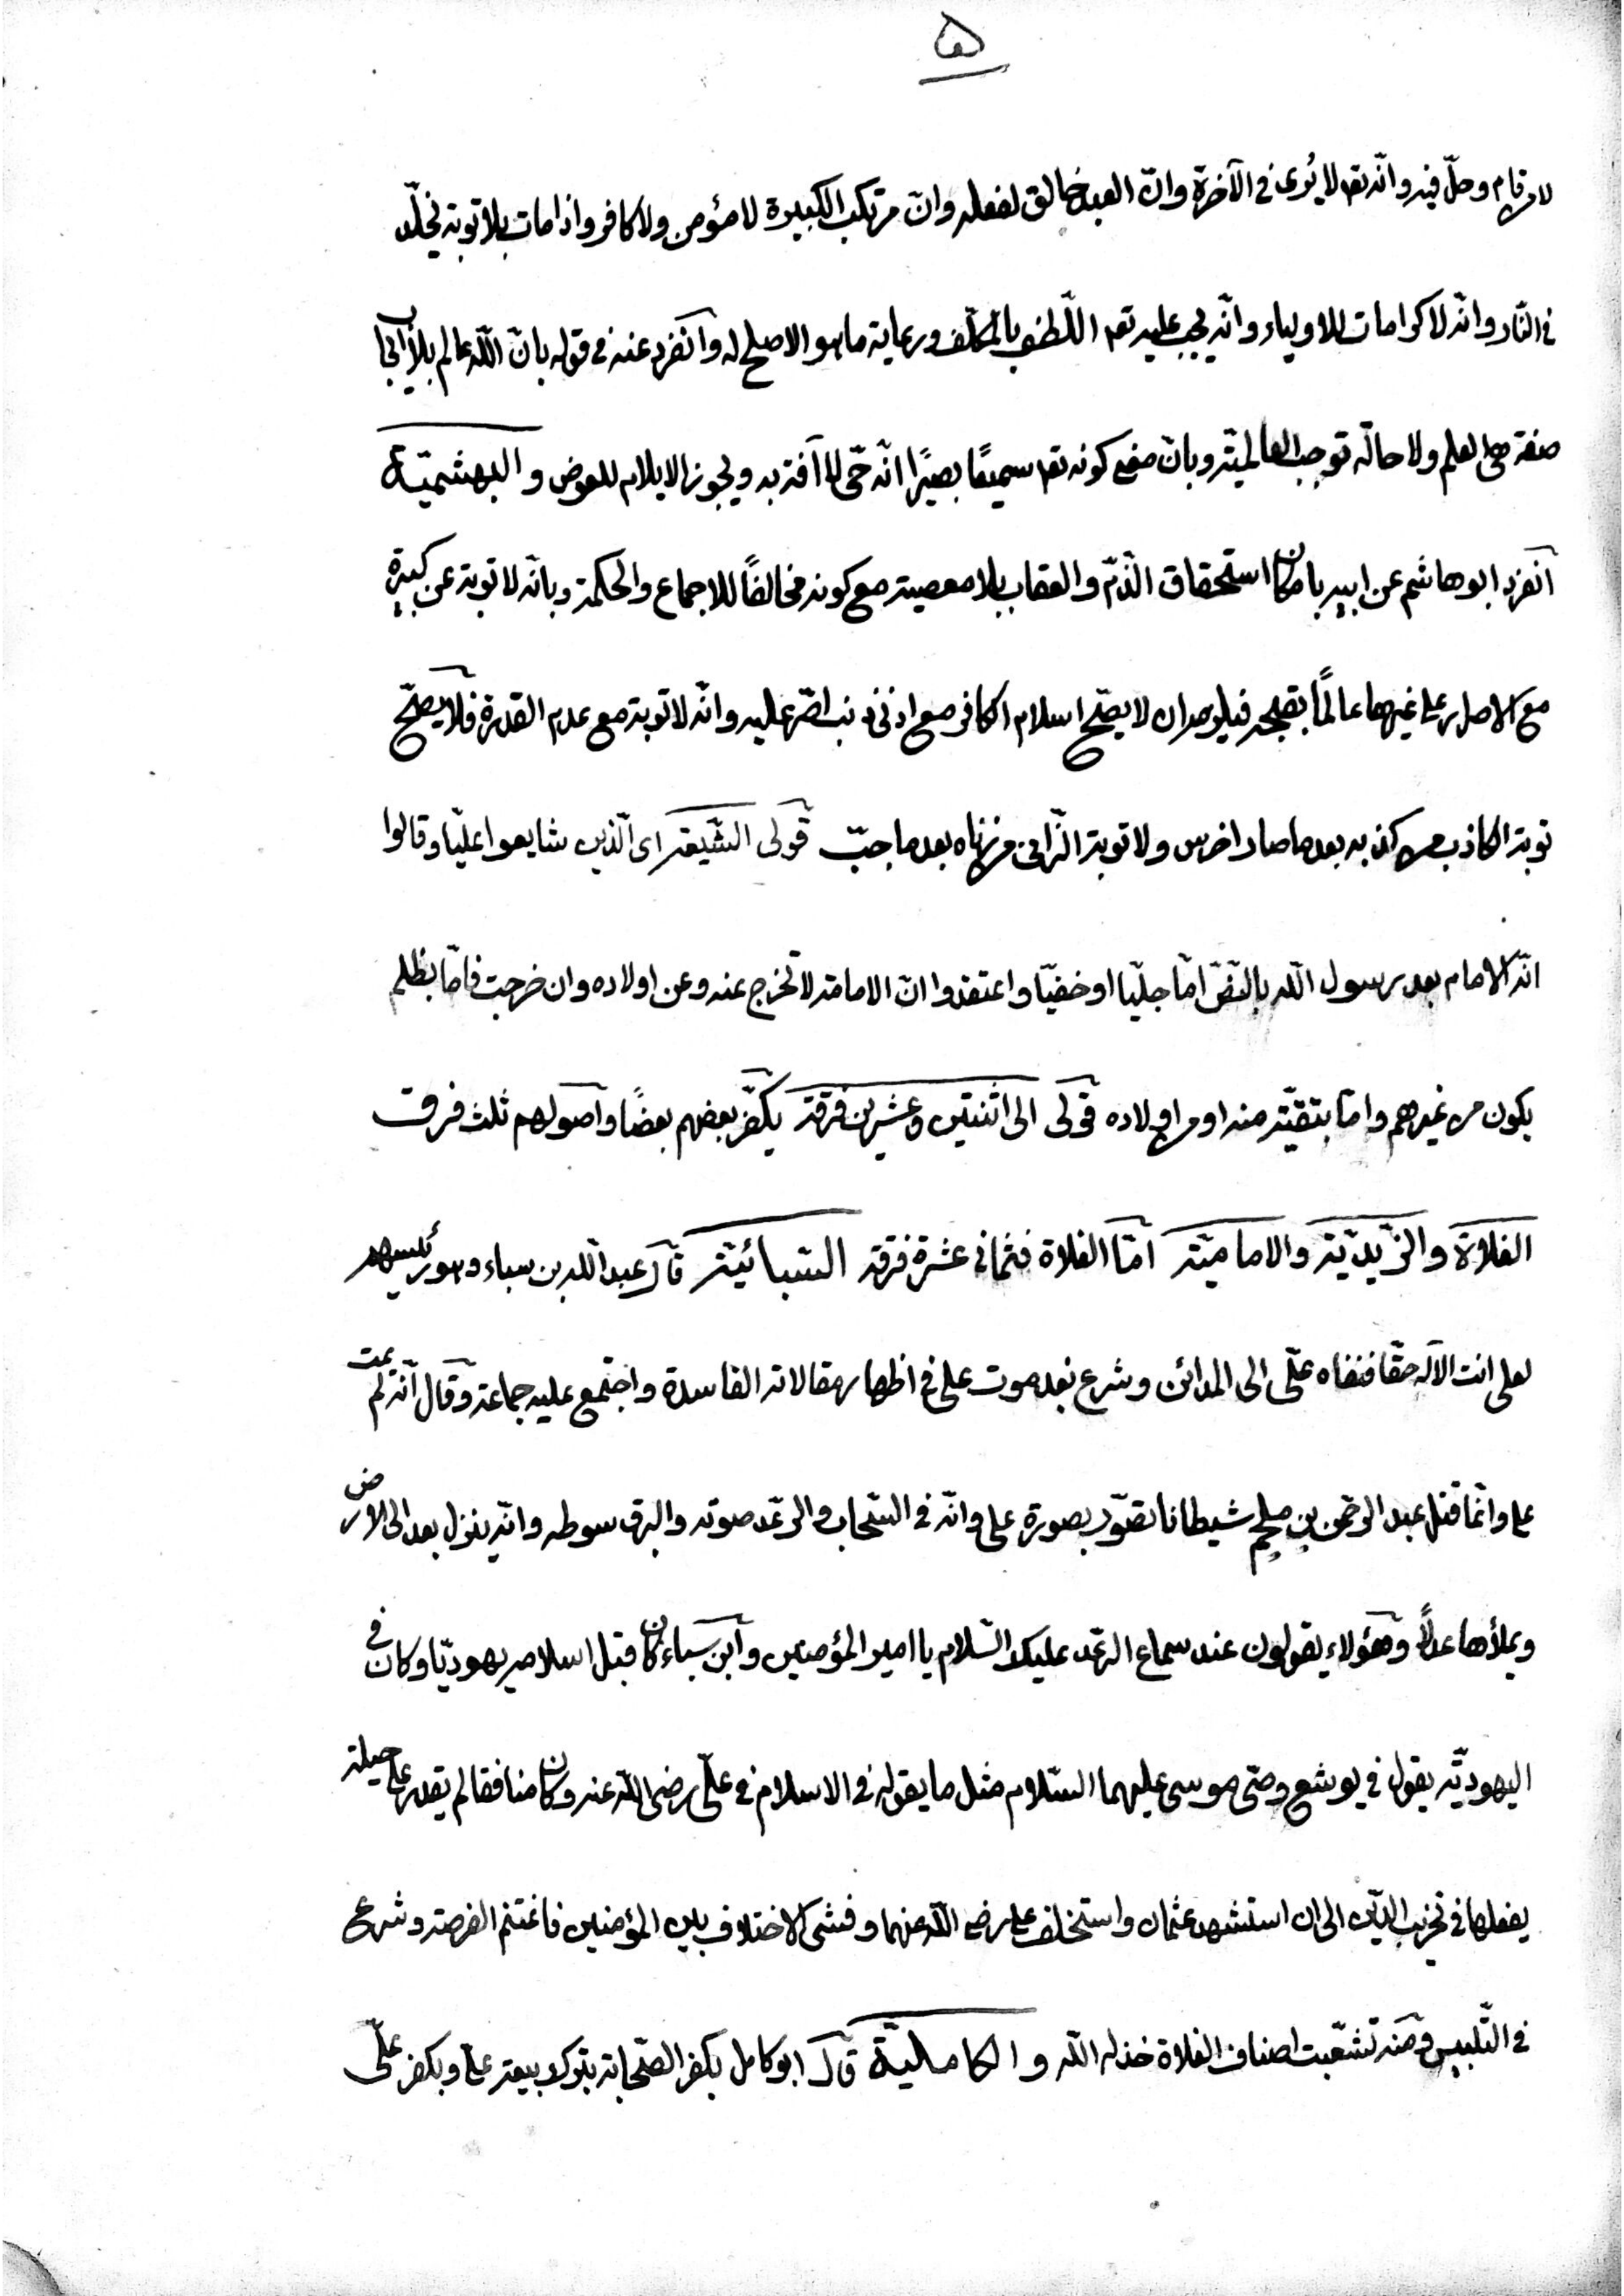 ۵
لامر قام وحلّ فيه وانّه تعـ لا يُرى فى الآخرة وانّ العبد خالق لفعله وانّ مرتكب الكبيرة لا مؤمن ولا كافر واذا مات بلا توبة يخلّد
فى النّار وانّه لا كرامات للاولياء وانّه يجب عليه تعـ اللّطف بالمكلّف ورعاية ما هو الاصلح له وانفرد عنه فى قوله بانّ اللّه عالم بلا ايجاب
صفة هى العلم ولا حالة توجب العالميّة وبانّ معنى كونه تعـ سميعًا بصيرًا انّه حىّ لا آفة به ويجوز الايلام للعوض والبهشميّة
انفرد ابو هاشم عن ابيه بامكان استحقاق الذّمّ والعقاب بلا معصية مع كونه مخالفًا للاجماع والحكمة وبانّه لا توبة عن كبيرة
مع الاصرار على غيرها عالمًا بقبحه فيلزمه ان لا يصحّ اسلام الكافر مع ادنى ذنب اصرّ عليه وانّه لا توبة مع عدم القدرة فلا يصحّ
توبة الكاذب من كذبه بعد ما صار اخرس ولا توبة الزّانى من زناه بعد ما جبّ قولى الشّيعة اى الّذين شايعوا عليّا وقالوا
انّه الامام بعد رسول اللّه بالنّصّ امّا جليّا او خفيّا واعتقدوا انّ الامامة لا تخرج عنه وعن اولاده وان خرجت فامّا بظلم
يكون من غيرهم وامّا بتقيّة منه او من اولاده قولى الى اثنتين وعشرين فرقة يكفّر بعضهم بعضًا واصولهم ثلث فرق
الغلاة والزّيديّة والاماميّة امّا الغلاة فثمانى عشرة فرقة السّبائيّة قال عبد اللّه بن سباء وهو رئيسهم
لعلى انت الآله حقّا فنفاه علّى الى المدائن وشرع بعد موت على فى اظهار مقالاته الفاسدة واجتمع عليه جماعة وقال انّه لم يمت
على وانّما قتل عبد الرّحمن بن ملجم شيطانا تصوّر بصورة على وانّه فى السّحاب والرّعد صوته والبرق سوطه وانّه ينزل بعد الى الارض
ويملأها عدلًا وهؤلاء يقولون عند سماع الرعد عليك السّلام يا امير المؤمنين وابن سباء كان قبل اسلامه يهوديّا وكان فى
اليهوديّة يقول فى يوشع وصّى موسى عليهما السّلام مثل ما يقوله فى الاسلام فى علّى رضى اللّه عنه وكان منافقا لم يقدر على حيلة
يفعلها فى تخريب الدّين الى ان استشهد عثمان واستخلف على رضى اللّه عنهما وفشى الاختلاف بين المؤمنين فاغتنم الفرصة وشرع
فى التّلبيس ومنه تشعّبت اصناف الغلاة خذله اللّه والكامليّة قال ابو كامل بكفر الصّحابة بترك بيعة على وبكفر علّى